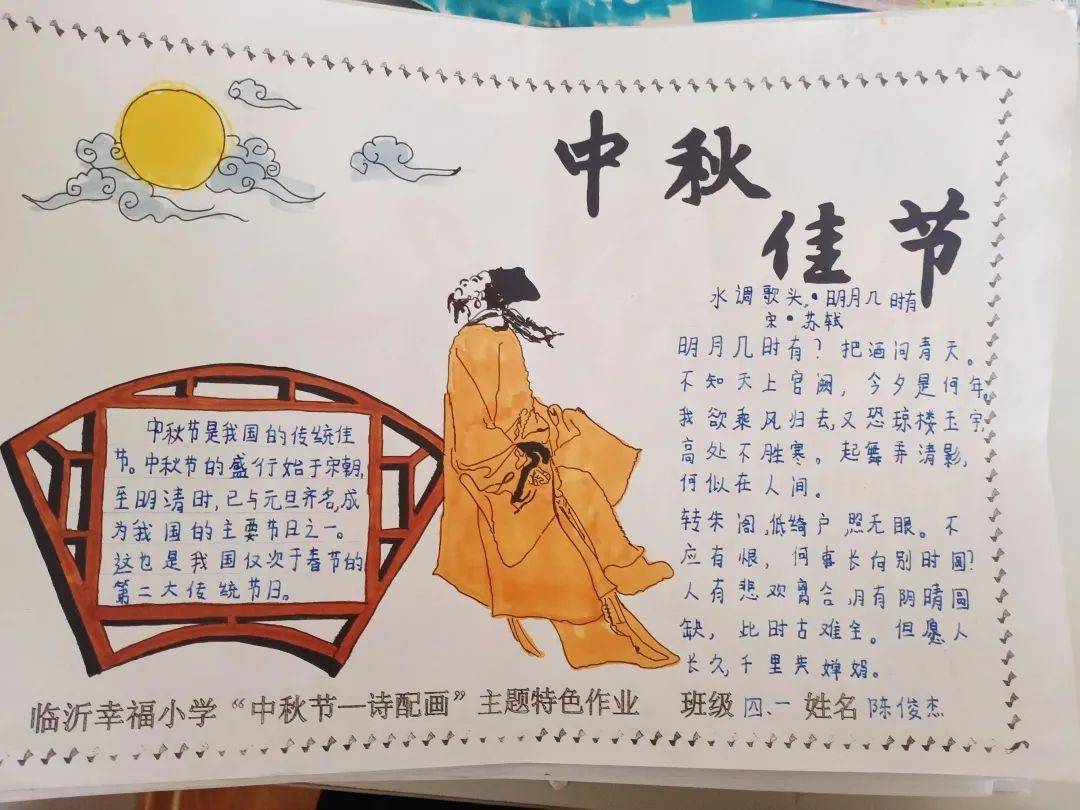 中秋
佳节
水调歌头·明月几时有
宋·苏轼
明月几时有？把酒问青天。
不知天上宫阙，今夕是何年。
我欲乘风归去，又恐琼楼玉宇，
高处不胜寒。起舞弄清影，
何似在人间。
转朱阁，低绮户，照无眠。不
应有恨，何事长向别时圆？
人有悲欢离合，月有阴晴圆
缺，此时古难全。但愿人
长久，千里共婵娟。
中秋节是我国的传统佳
节。中秋节的盛行始于宋朝，
至明清时，已与元旦齐名，成
为我国的主要节日之一。
这也是我国仅次于春节的
第二大传统节日。
临沂幸福小学“中秋节—诗配画”主题特色作业 班级 四、一 姓名 陈俊杰